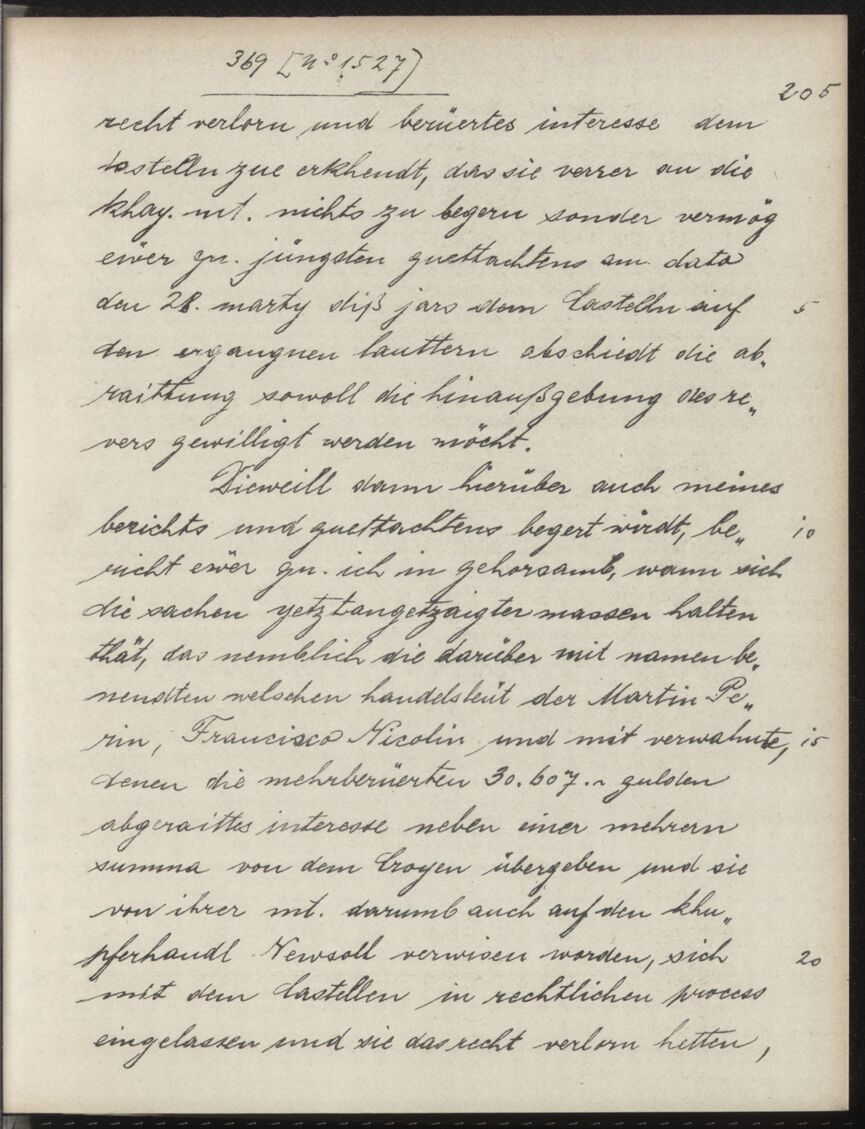 369 [Nº 1527]
205
recht verlorn und berüertes interesse dem
Castelln zue erkhendt, das sie verrer an die
khay. mt. nichts zu begern sonder vermög
ewer gn. jüngsten guettachtens am dato
den 28. marty diß jars dem Castelln auf 5
den ergangnen lauttern abschiedt die ab„
raittung sowoll die hinaußgebung des re„
vers gewilligt werden möcht.
Dieweill dann hierüber auch meines
berichts und guettachtens begert wirdt, be„ 10
richt ewer gn. ich in gehorsamb, wann sich
die sachen yetzt angetzaigter massen halten
thät, das nemblich die darüber mit namen be„
nendten welschen handelsleüt der Martin Pe„
rin, Francisco Nicolin und mit verwahnte, 15
denen die mehrberüerten 30.607.~ gulden
abgeraittes interesse neben einer mehrern
summa von dem Croyen übergeben und sie
von ihrer mt. darumb auch auf den khu„
pferhandl Newsoll verwisen worden, sich 20
mit dem Castellen in rechtlichen process
eingelassen und sie das recht verlorn hetten,